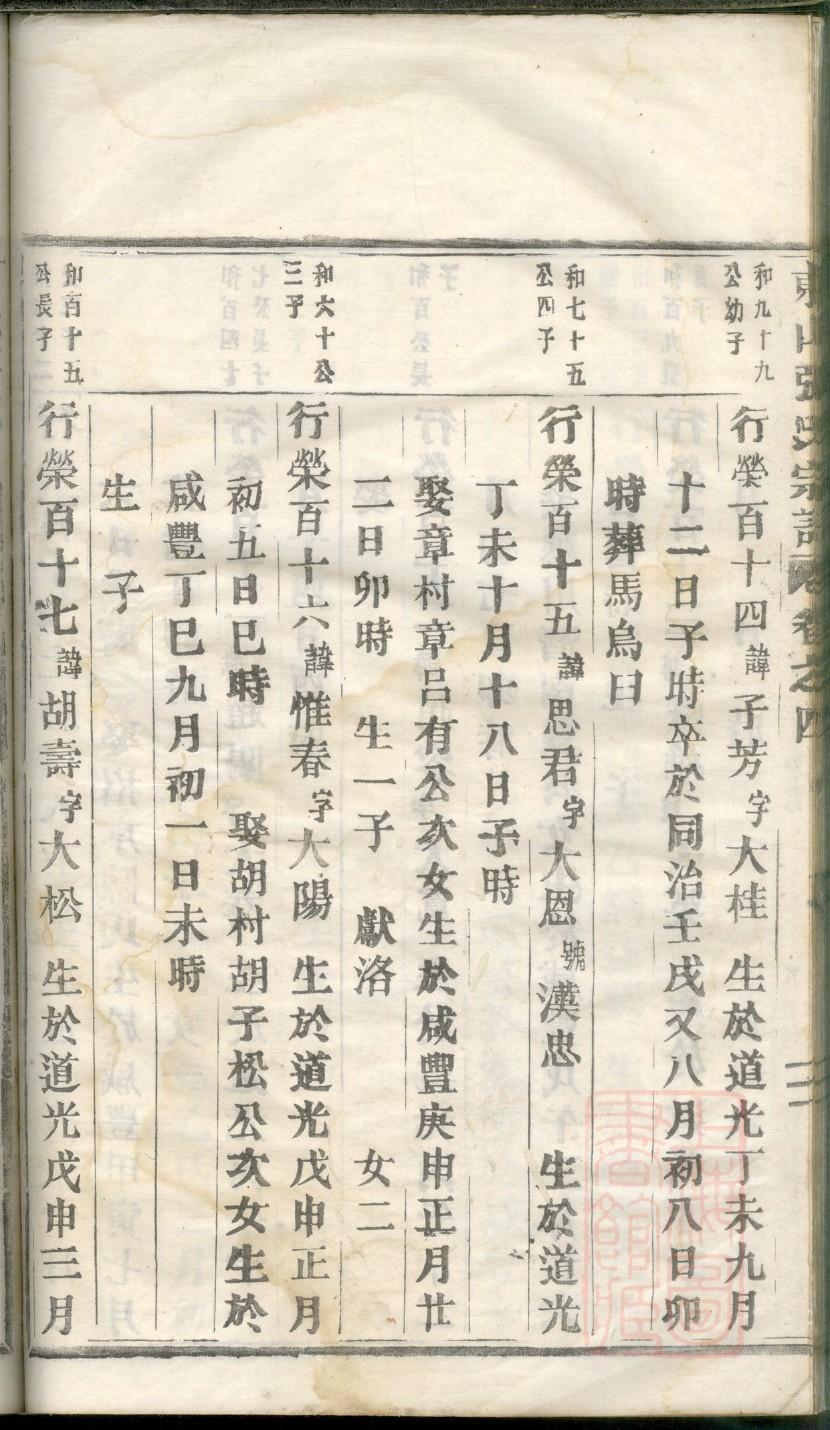 東山張氏宗譜 卷之四
和九十九
公幼子
行榮百十四諱子芳字大桂 生於道光丁未九月
十二日子時卒於同治壬戌又八月初八日卯
時葬馬烏曰
和七十五
公四子
行榮百十五諱思君字大恩號漢忠 生於道光
丁未十月十八日子時
娶章村章呂有公次女生於咸豐庚申正月廿
二日卯時 生一子 獻洛 女二
和六十公
三子
行榮百十六諱惟春字大陽 生於道光戊申正月
初五日巳時 娶胡村胡子松公次女生於
咸豐丁巳九月初一日未時
生 子
和百十五
公長子
行榮百十七諱胡壽字大松 生於道光戊申三月